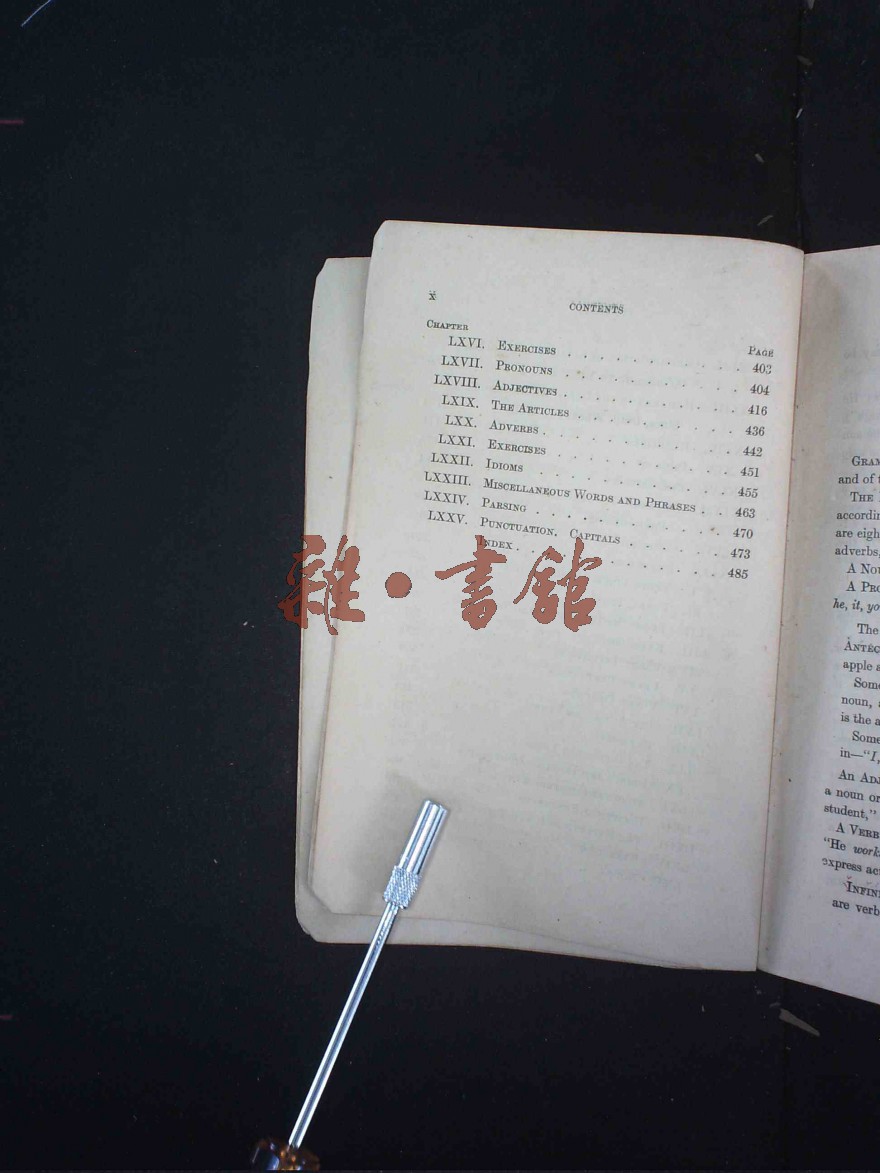 x CONTENTS
CHAPTER PAGE
LXVI. EXERCISES . . . . . . . . . 403
LXVII. PRONOUNS . . . . . . . . . 404
LXVIII. ADJECTIVES . . . . . . . . . 416
LXIX. THE ARTICLES . . . . . . . . 436
LXX. ADVERBS . . . . . . . . . 442
LXXI. EXERCISES . . . . . . . . . 451
LXXII. IDIOMS . . . . . . . . . 455
LXXIII. MISCELLANEOUS WORDS AND PHRASES . . 463
LXXIV. PARSING . . . . . . . . . 470
LXXV. PUNCTUATION, CAPITALS . . . . . 473
INDEX . . . . . . . . . 485
雜·書館
GRAM
and of t
THE
accordin
are eigh
adverbs,
A NOU
A PRO
he, it, yo
The
ANTEC
apple a
Some
noun, a
is the a
Some
in—"I,
AN ADJ
a noun or
student,"
A VERB
"He work
express ac
INFIN
are verb